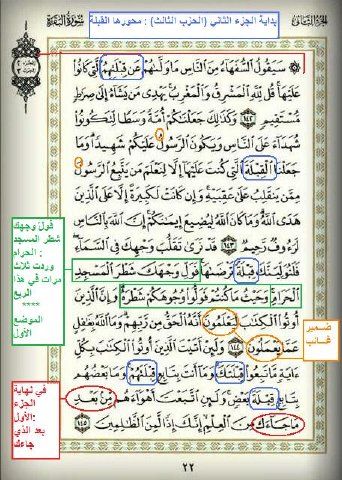 الجزء الثاني
بداية الجزء الثاني (الحزب الثالث) : محورها القبلة
سورة البقرة
۞ سَيَقُولُ السُّفَهَاءُ مِنَ النَّاسِ مَا وَلَّىٰهُمْ عَن قِبْلَتِهِمُ الَّتِي كَانُوا
عَلَيْهَا قُل لِّلَّهِ الْمَشْرِقُ وَالْمَغْرِبُ يَهْدِي مَن يَشَاءُ إِلَىٰ صِرَٰطٍ
مُّسْتَقِيمٍ ١٤٢ وَكَذَٰلِكَ جَعَلْنَٰكُمْ أُمَّةً وَسَطًا لِّتَكُونُوا
شُهَدَاءَ عَلَى النَّاسِ وَيَكُونَ الرَّسُولُ عَلَيْكُمْ شَهِيدًا وَمَا
جَعَلْنَا الْقِبْلَةَ الَّتِي كُنتَ عَلَيْهَا إِلَّا لِنَعْلَمَ مَن يَتَّبِعُ الرَّسُولَ
مِمَّن يَنقَلِبُ عَلَىٰ عَقِبَيْهِ وَإِن كَانَتْ لَكَبِيرَةً إِلَّا عَلَى الَّذِينَ
هَدَى اللَّهُ وَمَا كَانَ اللَّهُ لِيُضِيعَ إِيمَٰنَكُمْ إِنَّ اللَّهَ بِالنَّاسِ
لَرَءُوفٌ رَّحِيمٌ ١٤٣ قَدْ نَرَىٰ تَقَلُّبَ وَجْهِكَ فِي السَّمَاءِ
فَلَنُوَلِّيَنَّكَ قِبْلَةً تَرْضَىٰهَا فَوَلِّ وَجْهَكَ شَطْرَ الْمَسْجِدِ
الْحَرَامِ وَحَيْثُ مَا كُنتُمْ فَوَلُّوا وُجُوهَكُمْ شَطْرَهُ وَإِنَّ الَّذِينَ
أُوتُوا الْكِتَٰبَ لَيَعْلَمُونَ أَنَّهُ الْحَقُّ مِن رَّبِّهِمْ وَمَا اللَّهُ بِغَٰفِلٍ
عَمَّا يَعْمَلُونَ ١٤٤ وَلَئِنْ أَتَيْتَ الَّذِينَ أُوتُوا الْكِتَٰبَ بِكُلِّ
ءَايَةٍ مَّا تَبِعُوا قِبْلَتَكَ وَمَا أَنتَ بِتَابِعٍ قِبْلَتَهُمْ وَمَا بَعْضُهُم
بِتَابِعٍ قِبْلَةَ بَعْضٍ وَلَئِنِ اتَّبَعْتَ أَهْوَاءَهُم مِّن بَعْدِ
مَا جَاءَكَ مِنَ الْعِلْمِ إِنَّكَ إِذًا لَّمِنَ الظَّٰلِمِينَ ١٤٥
ضمير
غائب
فول وجهك
شطر المسجد
الحرام :
وردت ثلاث
مرات في هذا
الربع
****
الموضع
الأول
في نهاية
الجزء
الأول:
بعد الذي
جاءك
٢٢